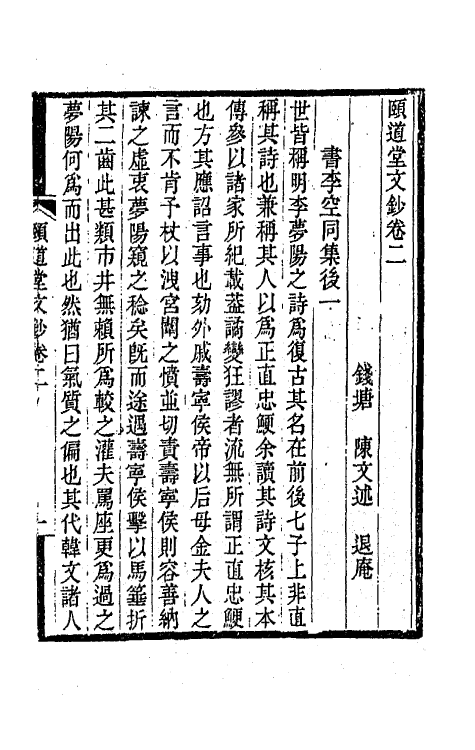 頤道堂文鈔卷二
錢塘 陳文述 退庵
書李空同集後一
世皆稱明李夢陽之詩爲復古其名在前後七子上非直
稱其詩也兼稱其人以爲正直忠鯁余讀其詩文核其本
傳參以諸家所紀載葢譎變狂謬者流無所謂正直忠鯁
也方其應詔言事也劾外戚壽寧侯帝以后母金夫人之
言而不肯予杖以洩宮闈之憤並切責壽寧侯則容善納
諫之虛衷夢陽窺之稔矣旣而途遇壽寧侯擊以馬箠折
其二齒此甚類市井無賴所爲較之灌夫罵座更爲過之
夢陽何爲而出此也然猶曰氣質之偏也其代韓文諸人
頤道堂文鈔卷二
一